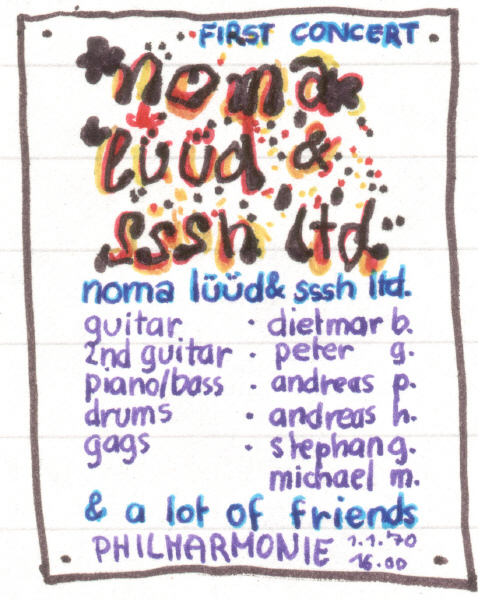 FIRST CONCERT
noma
lüüd &
sssh ltd.
noma lüüd & sssh ltd.
guitar · dietmar b.
2nd guitar · peter g.
piano/bass · andreas p.
drums · andreas h.
gags · stephan g.
michael m.
& a lot of friends
PHILHARMONIE 1.1.'70
16.00